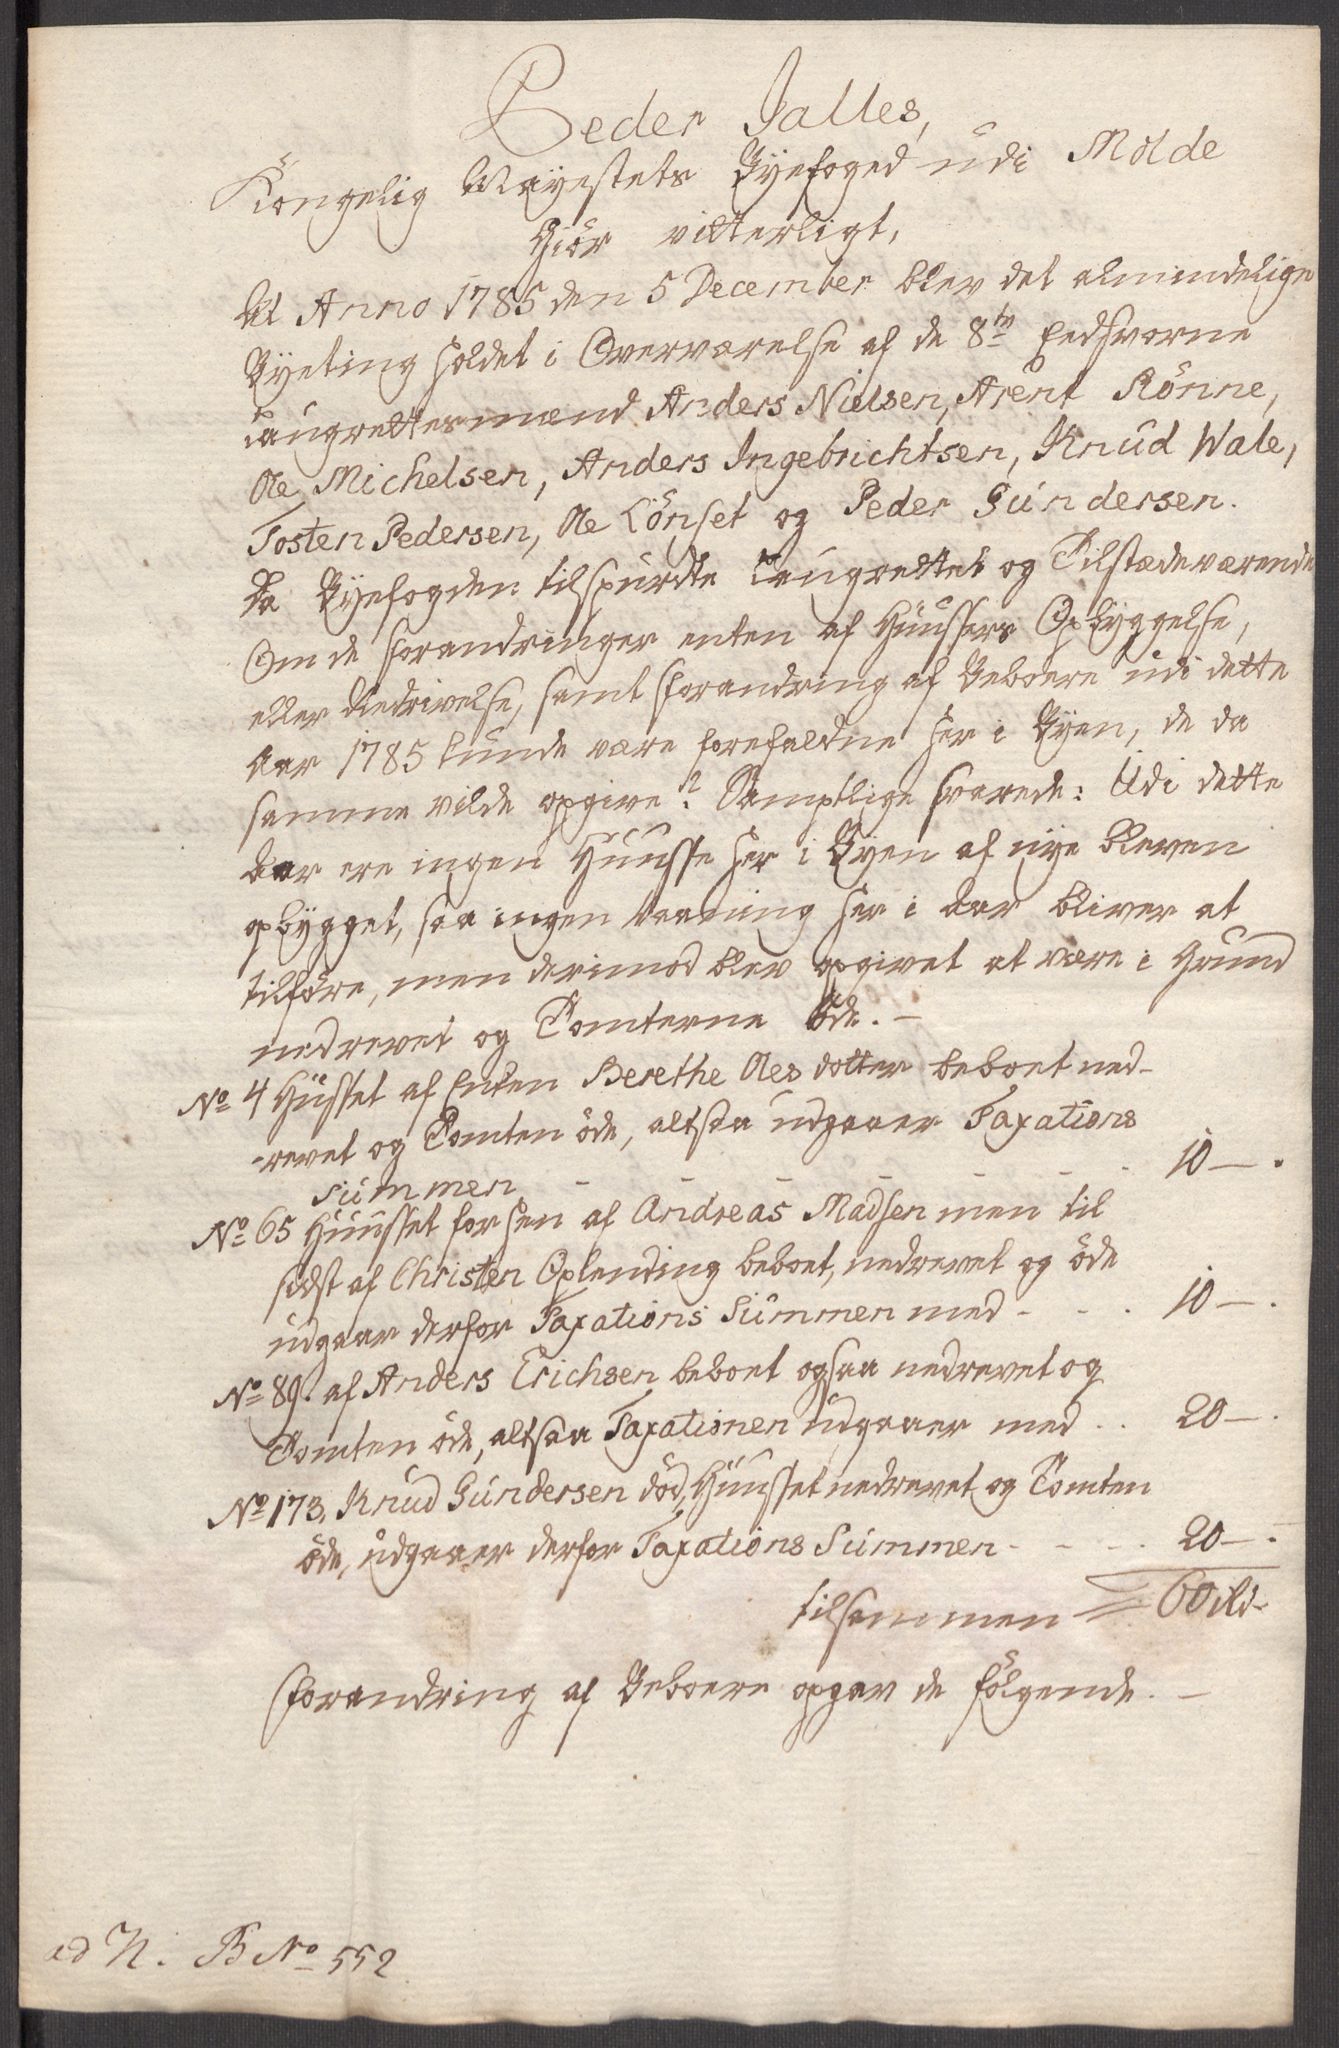 Peder Jalles,
Kongelig Mayestets Byefoged udi Molde
Giör vitterligt,
At Anno 1785 den 5 December blev det almindelige
Byeting holdet i Overværelse af de 8te Eedsvorne
Laugrettesmænd Anders Nielsen, Arent Rönne,
Ole Michelsen, Anders Ingebrichtsen, Knud Wale,
Tosten Pedersen, Ole Lönset og Peder Gundersen.
Da Byefogden tilspurdte Laugrettet og Tilstædeværende
Om de Forandringer enten af Huussers Opbyggelse,
eller Nedrivelse, samt Forandring af Beboere udi dette
Aar 1785 kunde være forefaldne her i Byen, de da
samme vilde opgive? Samptlige svarede: Udi dette
Aar ere ingen Huusse her i Byen af nye bleven
opbygget, saa ingen Vaaning her i Aar bliver at
tilföre, men derimod blev opgivet at være i Grund
nedrevet og Tomterne öde. -
No 4 Husset af Enken Berethe Oles dotter beboet ned-
-revet og Tomten öde, altsaa udgaaer Taxations
Summen - - - - - 10 - .
No 65 Huusset forhen af Andreas Madsen men til
sidst af Christen Oplending beboet, nedrevet og öde
udgaar derfor Taxations Summen med - - . 10 - .
No 89. af Anders Erichsen beboet ogsaa nedrevet og
Tomten öde, altsaa Taxationen udgaaer med . . 20 - .
No 173. Knud Gundersen död, Huusset nedrevet og Tomten
öde, udgaaer derfor Taxations Summen - - - . 20 - .
tilsammen = 60 Rd-
Forandring af Beboere opgav de fölgende. -
ad N. B No 552